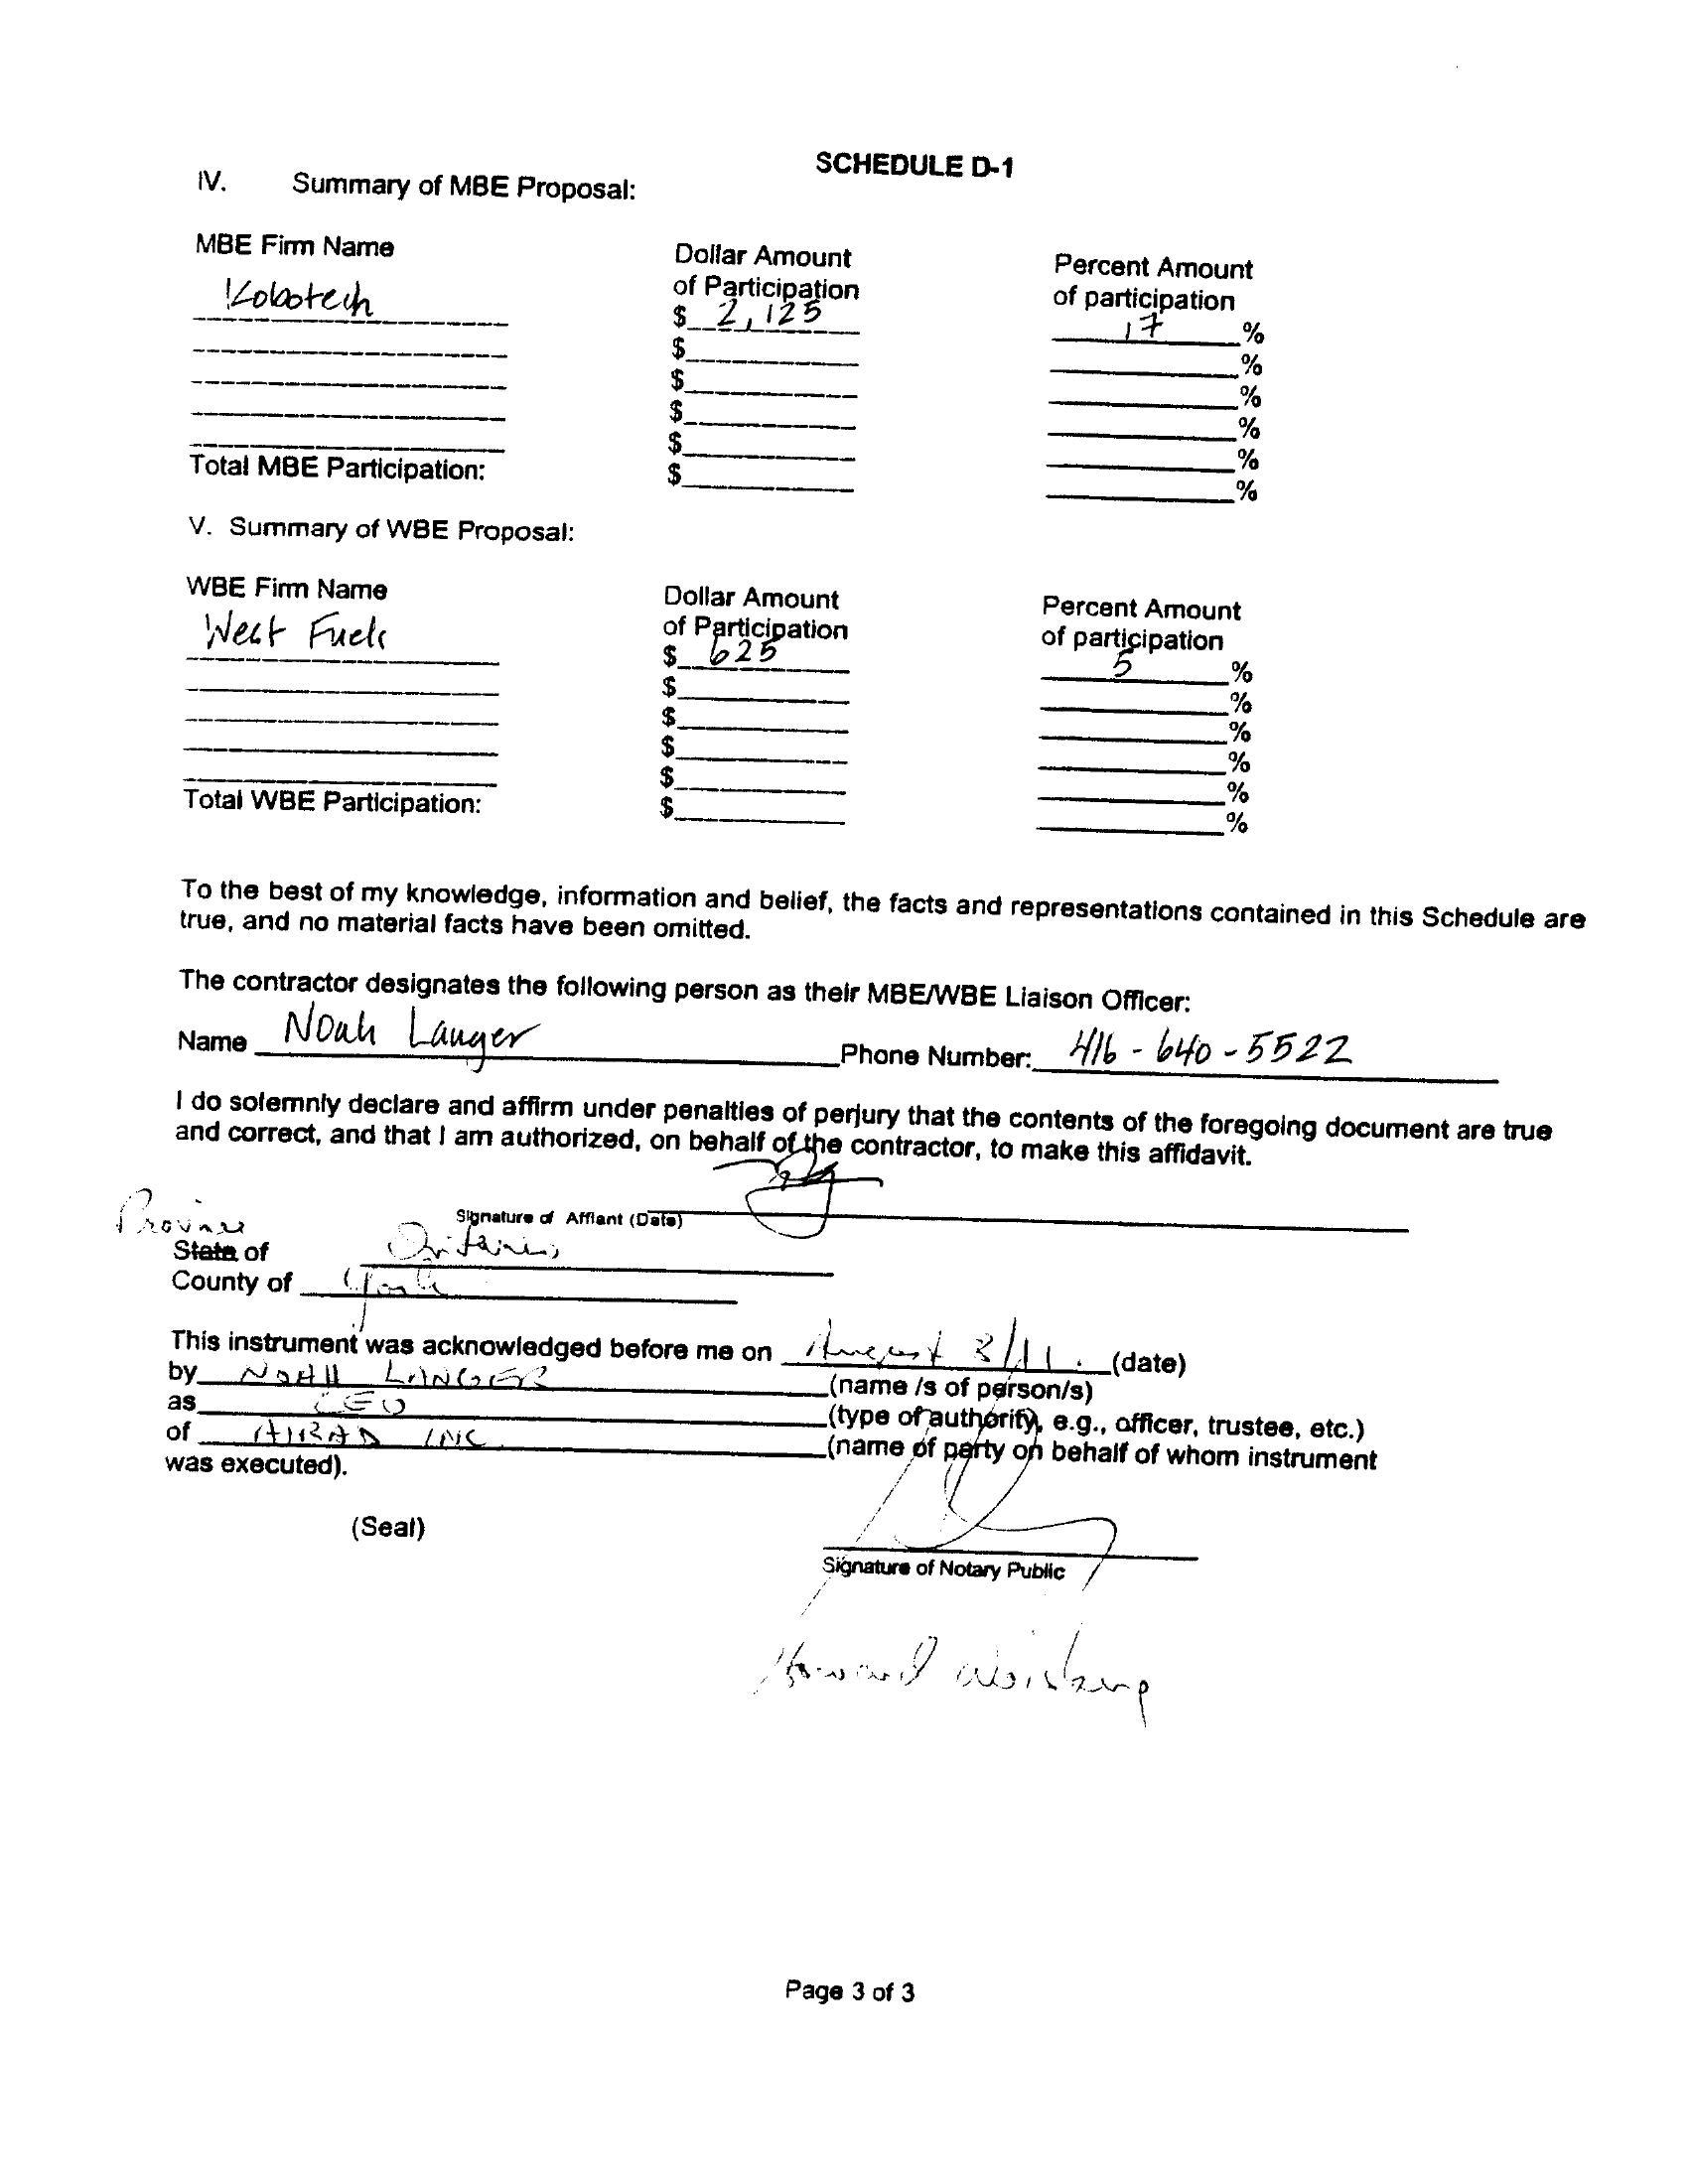 SCHEDULE D-1
IV. Summary of MBE Proposal:
MBE Firm Name Dollar Amount of Participation Percent Amount of participation
Kobotech $ 2,125 17 %
$ %
$ %
$ %
$ %
Total MBE Participation: $ %
V. Summary of WBE Proposal:
WBE Firm Name Dollar Amount of Participation Percent Amount of participation
West Fuels $ 625 5 %
$ %
$ %
$ %
$ %
Total WBE Participation: $ %
To the best of my knowledge, information and belief, the facts and representations contained in this Schedule are
true, and no material facts have been omitted.
The contractor designates the following person as their MBE/WBE Liaison Officer:
Name Noah Langer Phone Number: 416-640-5522
I do solemnly declare and affirm under penalties of perjury that the contents of the foregoing document are true
and correct, and that I am authorized, on behalf of the contractor, to make this affidavit.
Signature of Affiant (Date)
Province
State of Ontario
County of York
This instrument was acknowledged before me on August 8/11. (date)
by NOAH LANGER (name /s of person/s)
as CEO (type of authority, e.g., officer, trustee, etc.)
of AIRAD INC. (name of party on behalf of whom instrument
was executed).
(Seal)
Signature of Notary Public
Howard
Page 3 of 3